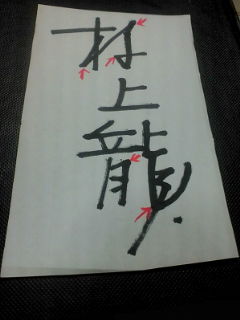 村上龍